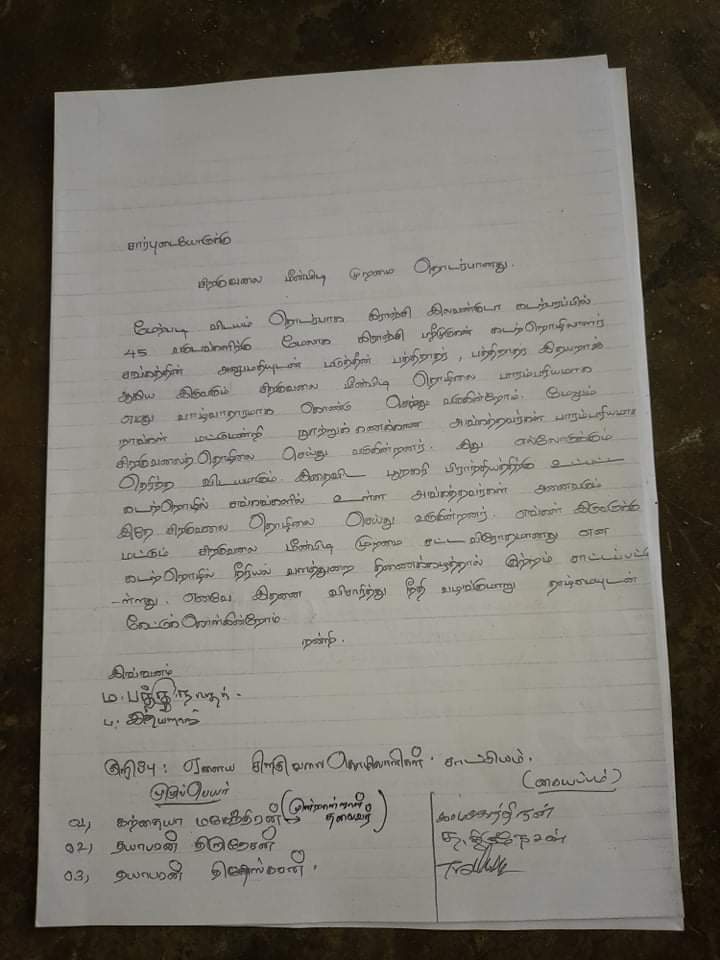 சார்புடையோருக்கு
சிறகுவலை மீன்பிடி முறமை தொடர்பானது.
மேற்படி விடயம் தொடர்பாக கிராஞ்சி இலவன்குடா கடற்பரப்பில்
45 வருடங்களிற்கு மேலாக கிராஞ்சி ஸ்ரீமுருகன் கடற்றொழிலாளர்
சங்கத்தின் அனுமதியுடன் மடுத்தீன் பத்திநாதர், பத்திநாதர் இதயராஜ்
ஆகிய இருவரும் சிறகுவலை மீன்பிடி தொழிலை பாரம்பரியமாக
எமது வாழ்வாதாரமாக கொண்டு செய்து வருகின்றோம். மேலும்
நாங்கள் மட்டுமன்றி நூற்றுக்கணக்கான அங்கத்தவர்கள் பாரம்பரியமாக
சிறகுவலைத்தொழிலை செய்து வருகின்றனர். இது எல்லோருக்கும்
தெரிந்த விடயமாகும். இதைவிட பூநகரி பிராந்தியத்திற்கு உட்பட்ட
கடற்றொழில் சங்கங்களில் உள்ள அங்கத்தவர்கள் அனைவரும்
இதே சிறகுவலை தொழிலை செய்து வருகின்றனர். எங்கள் இருவருக்கு
மட்டும் சிறகுவலை மீன்பிடி முறமை சட்ட விரோதமானது என
கடற்றொழில் நீரியல் வளத்துறை திணைக்களத்தால் குற்றம் சாட்டப்பட்டு
-ள்ளது. எனவே இதனை விசாரித்து நீதி வழங்குமாறு தாழ்மையுடன்
கேட்டுக்கொள்கின்றோம்.
நன்றி.
இவ்வண்ணம்
ம. பத்திநாதர்.
ப. இதயராஜ்
குறிப்பு: ஏனைய சிறகுவலை தொழிலாளிகள். சாட்சியம்.
முழுப்பெயர் (கையொப்பம்)
01, கந்தையா மகேந்திரன் → (முன்னாள் தலைவர்)
02, தயாபரன்
03, தயாபரன்